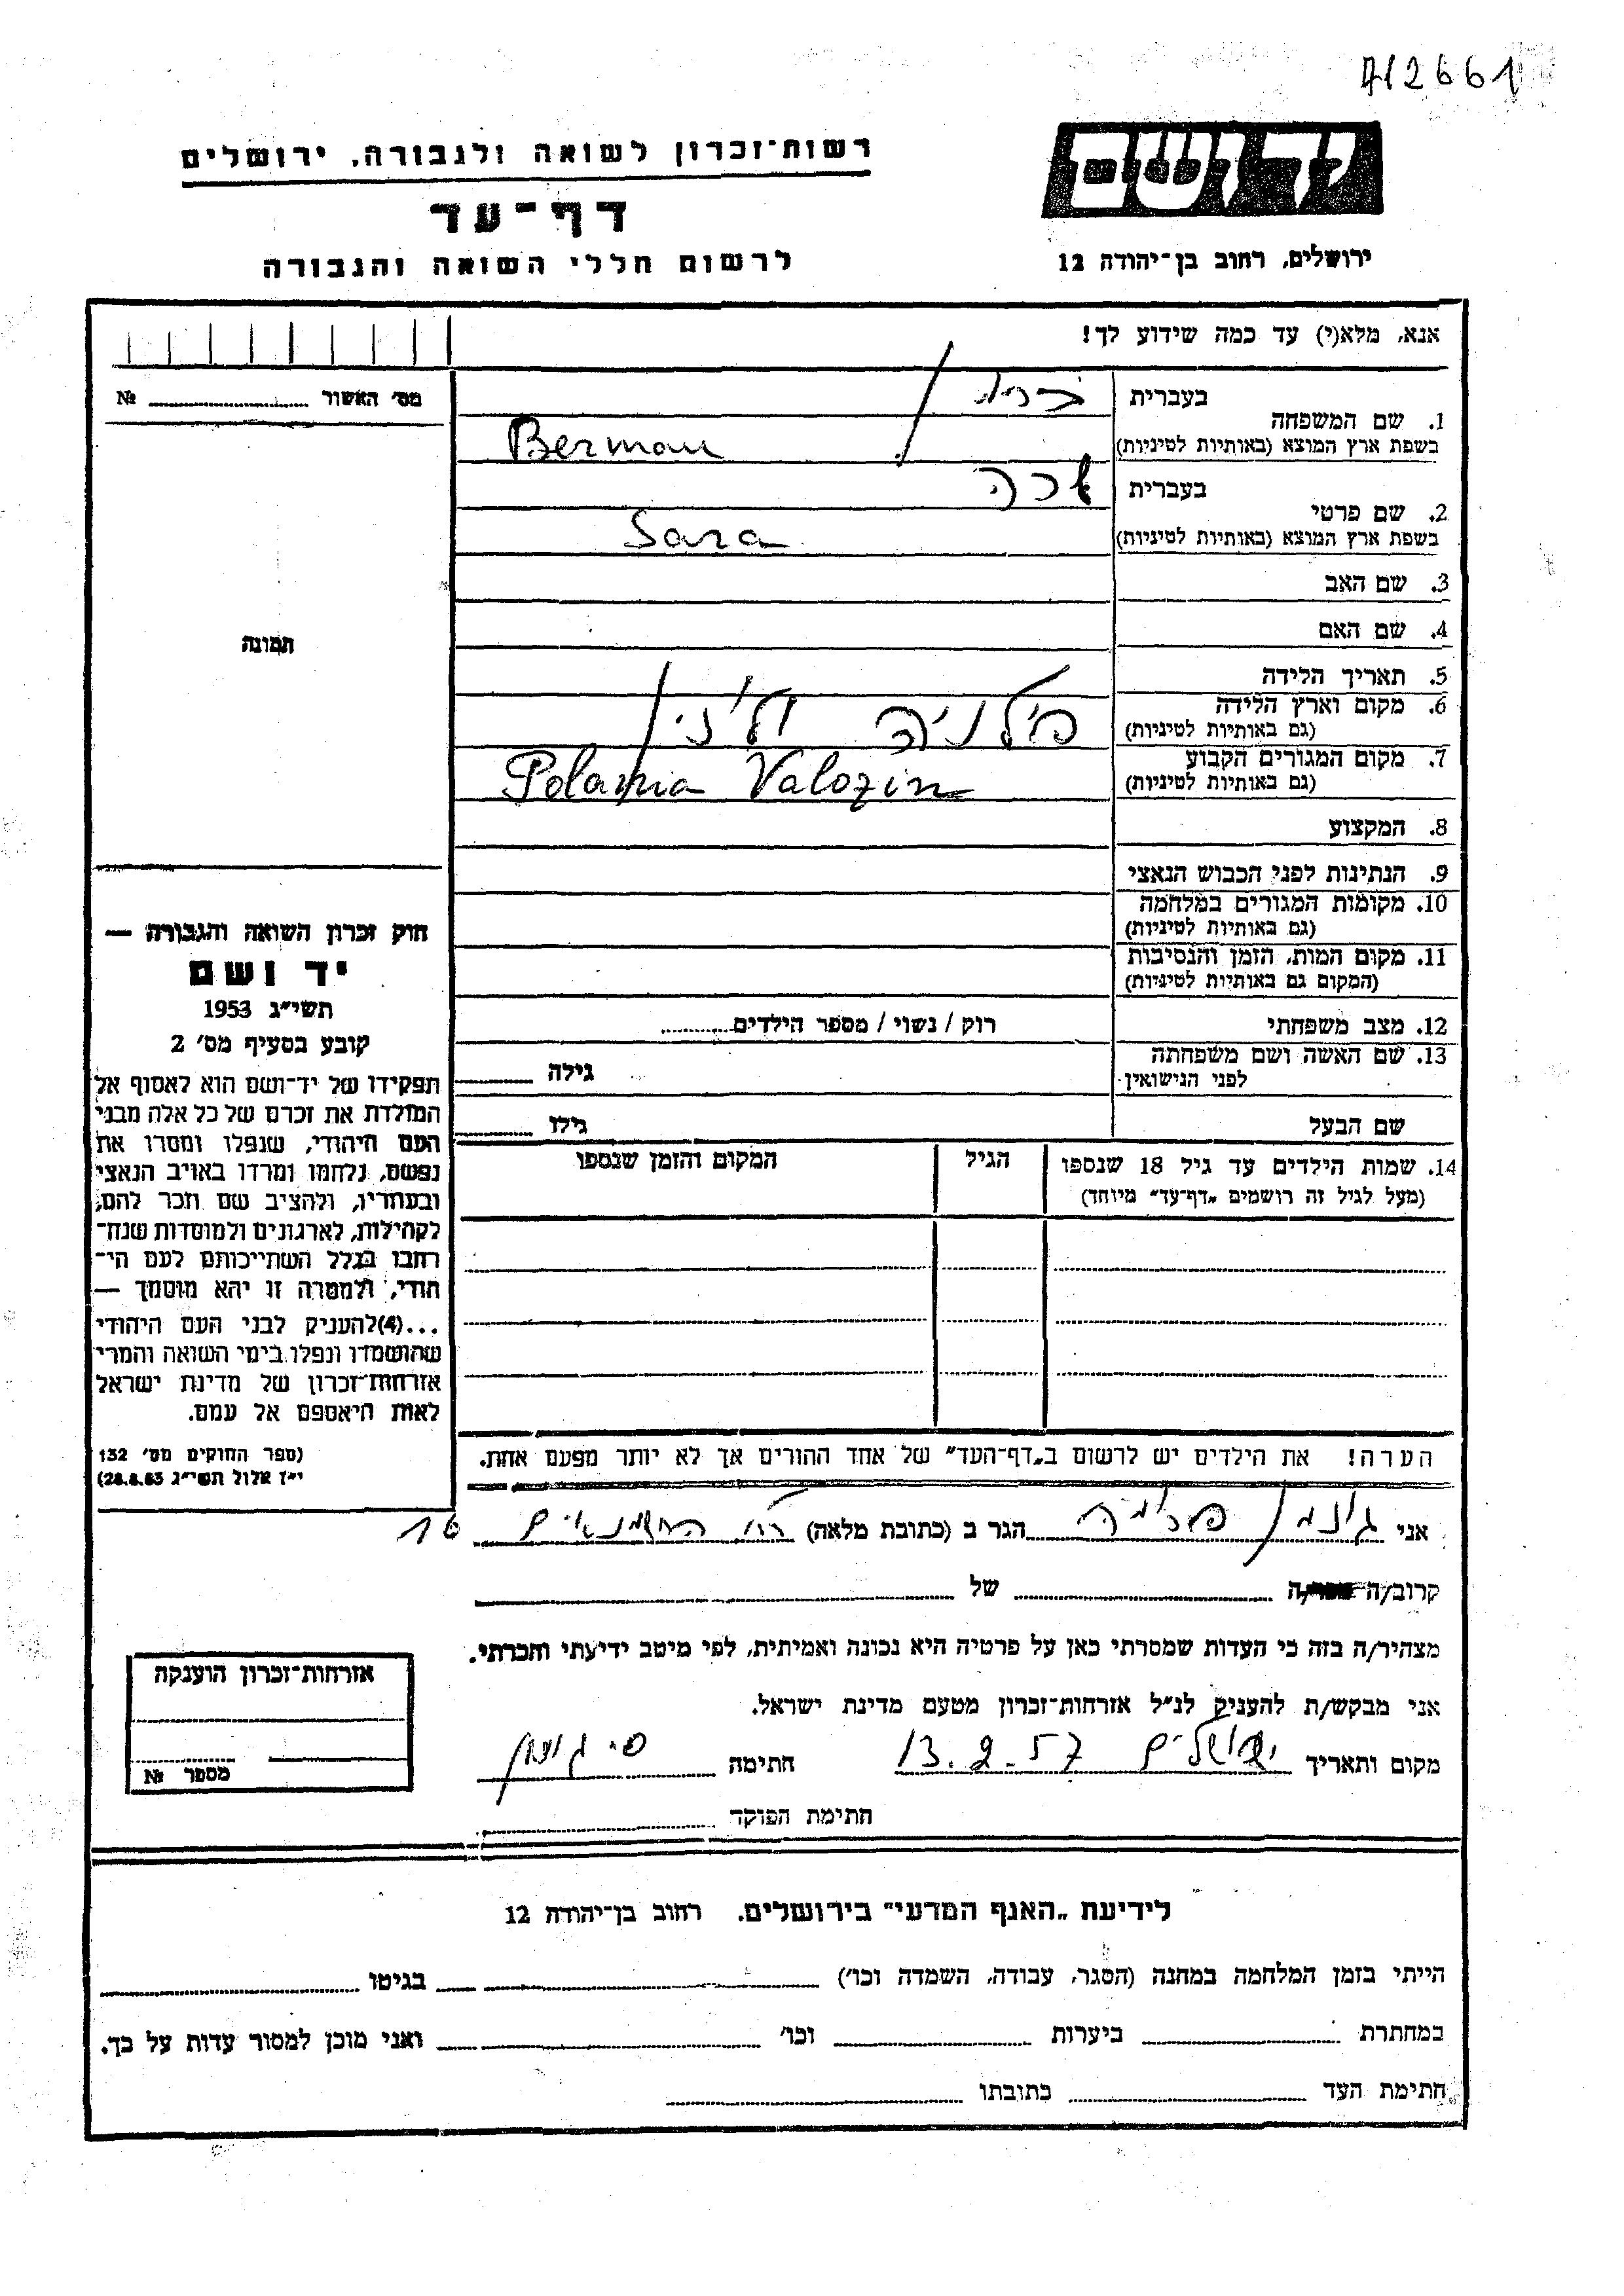 712661
יד ושם
רשות־זכרון לשואה ולגבורה, ירושלים
דף־עד
לרשום חללי השואה והגבורה
ירושלים, רחוב בן־יהודה 12
אנא, מלא(י) עד כמה שידוע לך!
מס׳ האשור № 
1. שם המשפחה
בעברית ברמן
בשפת ארץ המוצא (באותיות לטיניות) Berman
2. שם פרטי
בעברית שרה
בשפת ארץ המוצא (באותיות לטיניות) Sara
3. שם האב
4. שם האם
תמונה
5. תאריך הלידה
6. מקום וארץ הלידה
(גם באותיות לטיניות)
7. מקום המגורים הקבוע
(גם באותיות לטיניות) Valozin
8. המקצוע
9. הנתינות לפני הכבוש הנאצי
10. מקומות המגורים במלחמה
(גם באותיות לטיניות)
11. מקום המות, הזמן והנסיבות
(המקום גם באותיות לטיניות)
12. מצב משפחתי רוק / נשוי / מספר הילדים
13. שם האשה ושם משפחתה
לפני הנישואין גילה
שם הבעל גילו
14. שמות הילדים עד גיל 18 שנספו הגיל המקום והזמן שנספו
(מעל לגיל זה רושמים „דף־עד״ מיוחד)
חוק זכרון השואה והגבורה —
יד ושם
תשי״ג 1953
קובע בסעיף מס׳ 2
תפקידו של יד־ושם הוא לאסוף אל
המולדת את זכרם של כל אלה מבני
העם היהודי, שנפלו ומסרו את
נפשם, נלחמו ומרדו באויב הנאצי
ובעוזריו, ולהציב שם וזכר להם,
לקהילות, לארגונים ולמוסדות שנח־
רחבו בגלל השתייכותם לעם הי־
הודי, ולמטרה זו יהא מוסמך —
...(4)להעניק לבני העם היהודי
שהושמדו ונפלו בימי השואה והמרי
אזרחות־זכרון של מדינת ישראל
לאות היאספם אל עמם.
(ספר החוקים מס׳ 132
י״ז אלול תשי״ג 28.8.53)
הערה! את הילדים יש לרשום ב„דף־העד״ של אחד ההורים אך לא יותר מפעם אחת.
אני הגר ב (כתובת מלאה) רח החשמנאים 16
קרוב/ה של
מצהיר/ה בזה כי העדות שמסרתי כאן על פרטיה היא נכונה ואמיתית, לפי מיטב ידיעתי והכרתי.
אני מבקש/ת להעניק לנ״ל אזרחות־זכרון מטעם מדינת ישראל.
מקום ותאריך ירושלים 13.2.57 חתימה
חתימת הפוקד
אזרחות־זכרון הוענקה
מספר №
לידיעת „האגף המדעי״ בירושלים, רחוב בן־יהודה 12
הייתי בזמן המלחמה במחנה (הסגר, עבודה, השמדה וכו׳) בגיטו
במחתרת ביערות וכו׳ ואני מוכן למסור עדות על כך.
חתימת העד כתובתו